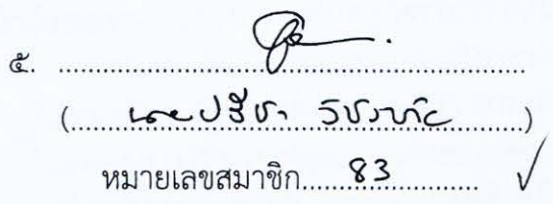 ๕. ........................................
(นายปรีชา ...............)
หมายเลขสมาชิก.....83............ ✓